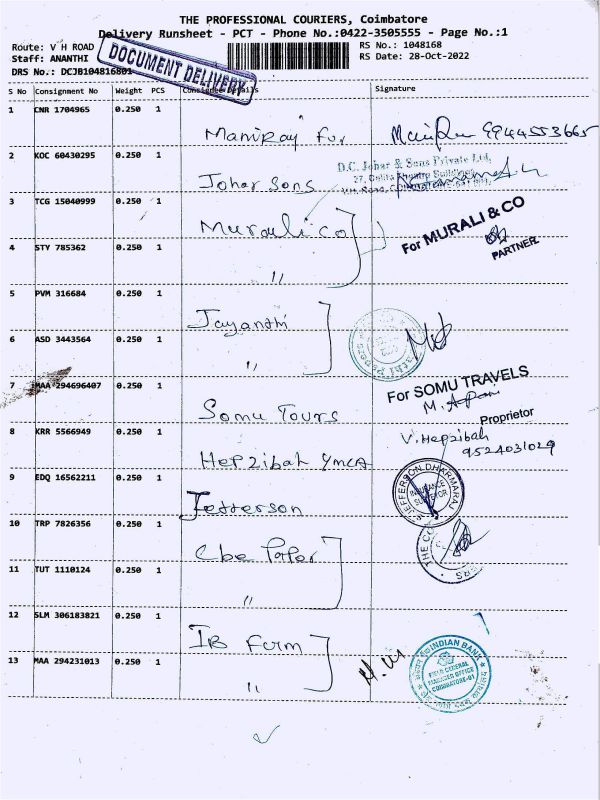 THE PROFESSIONAL COURIERS, Coimbatore
Delivery Runsheet - PCT - Phone No.:0422-3505555 - Page No.:1
Route: V H ROAD
Staff: ANANTHI
DRS No.: DCJB104816801
DOCUMENT DELIVERY
RS No.: 1048168
RS Date: 28-Oct-2022
S No Consignment No Weight PCS Consignee Details Signature
1 CNR 1704965 0.250 1
Maniraj Fur 9944553665
2 KOC 60430295 0.250 1
Johar Sons
D.C. Johar & Sons Private Ltd,
3 TCG 15040999 0.250 1
Murali co
For MURALI & CO
PARTNER
4 STY 785362 0.250 1
"
5 PVM 316684 0.250 1
Jayanthi
6 ASD 3443564 0.250 1
"
7 MAA 294696407 0.250 1
Somu Tours
For SOMU TRAVELS
Proprietor
8 KRR 5566949 0.250 1
Hepzibah YMCA
V. Hepzibah
9524031029
9 EDQ 16562211 0.250 1
Jefferson
JEFFERSON DHARMARAJ
INSURANCE
SURVEYOR
10 TRP 7826356 0.250 1
Cbe Paper
11 TUT 1110124 0.250 1
"
12 SLM 306183821 0.250 1
IB Furm
13 MAA 294231013 0.250 1
"
INDIAN BANK
FIELD GENERAL
MANAGER OFFICE
COIMBATORE-01